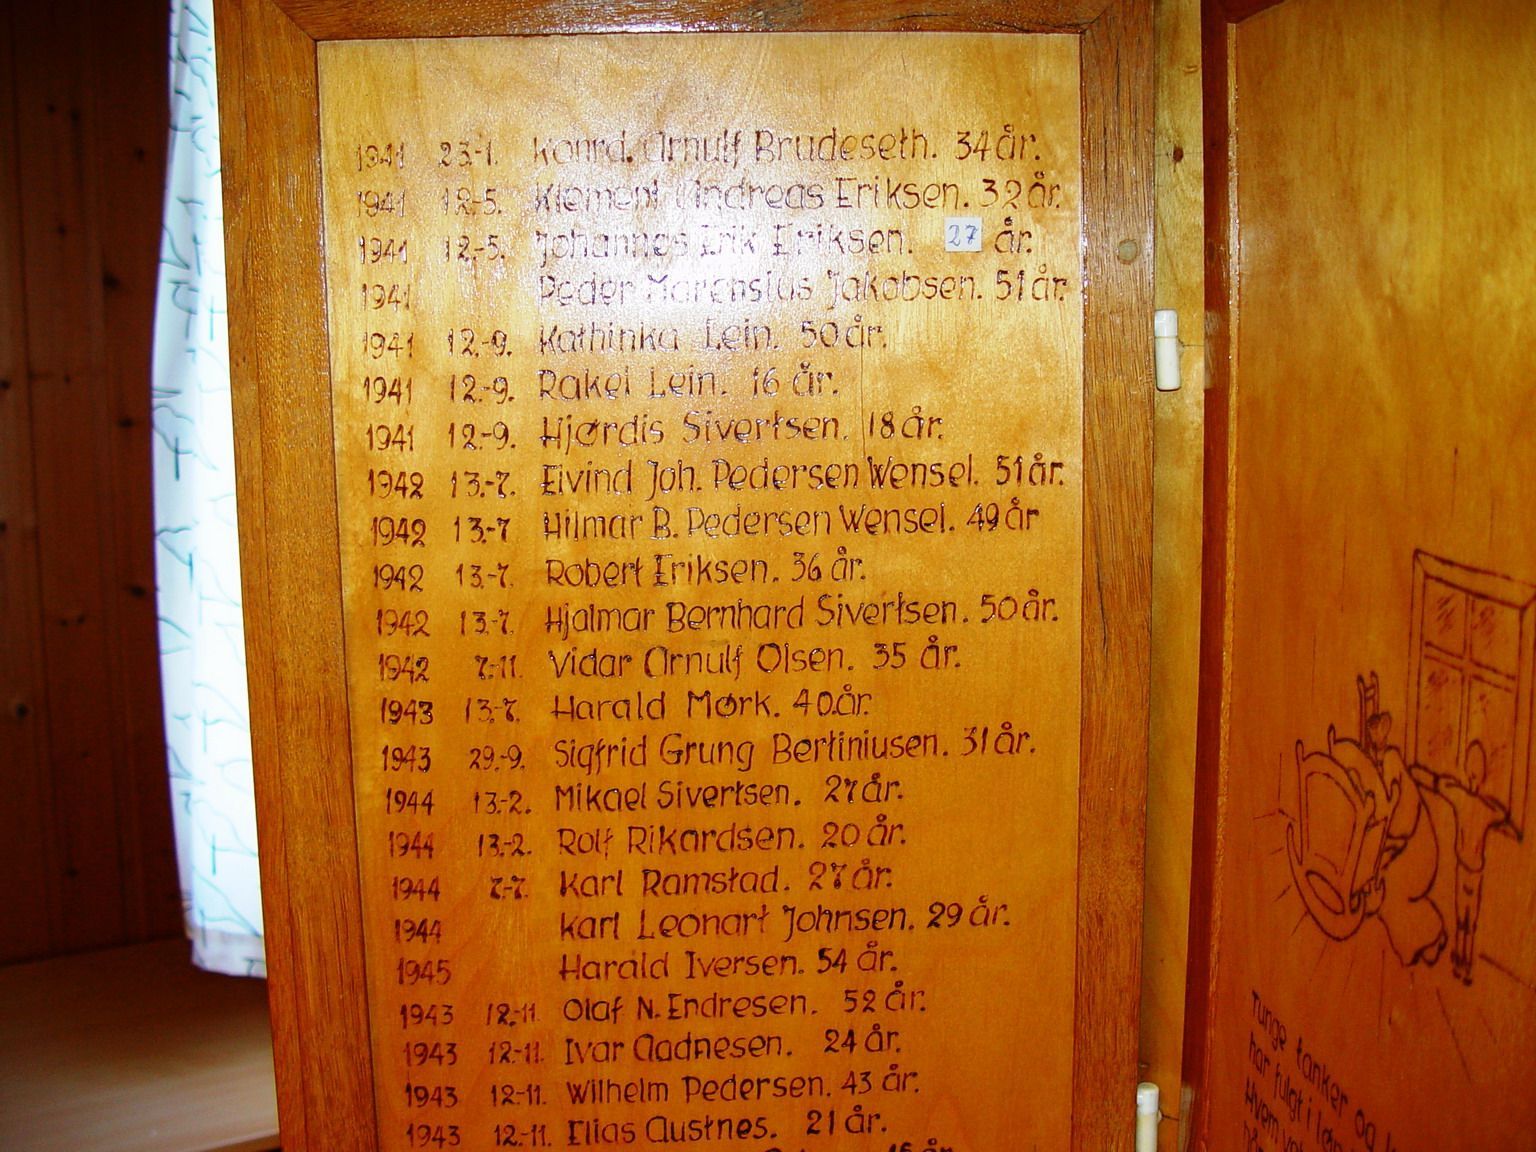 1941 23.-1. Konrd. Arnulf Brudeseth. 34 år.
1941 12.-5. Klement Andreas Eriksen. 32 år.
1941 12.-5. Johannes Erik Eriksen. 27 år.
1941 Peder Marensius Jakobsen. 51 år.
1941 12.-9. Kathinka Lein. 50 år.
1941 12.-9. Rakel Lein. 16 år.
1941 12.-9. Hjørdis Sivertsen. 18 år.
1942 13.-7. Eivind Joh. Pedersen Wensel. 51 år.
1942 13.-7 Hilmar B. Pedersen Wensel. 49 år
1942 13.-7. Robert Eriksen. 36 år.
1942 13.-7. Hjalmar Bernhard Sivertsen. 50 år.
1942 7.-11. Vidar Arnulf Olsen. 35 år.
1943 13.-7. Harald Mørk. 40.år.
1943 29.-9. Sigfrid Grung Bertiniusen. 31 år.
1944 13.-2. Mikael Sivertsen. 27 år.
1944 13.-2. Rolf Rikardsen. 20 år.
1944 7.-7. Karl Ramstad. 27 år.
1944 Karl Leonart Johnsen. 29 år.
1945 Harald Iversen. 54 år.
1943 12.-11. Olaf N. Endresen. 52 år.
1943 12.-11. Ivar Aadnesen. 24 år.
1943 12.-11. Wilhelm Pedersen. 43 år.
1943 12.-11. Elias Austnes. 21 år.
Tunge tanker og
har fulgt i
Hvem